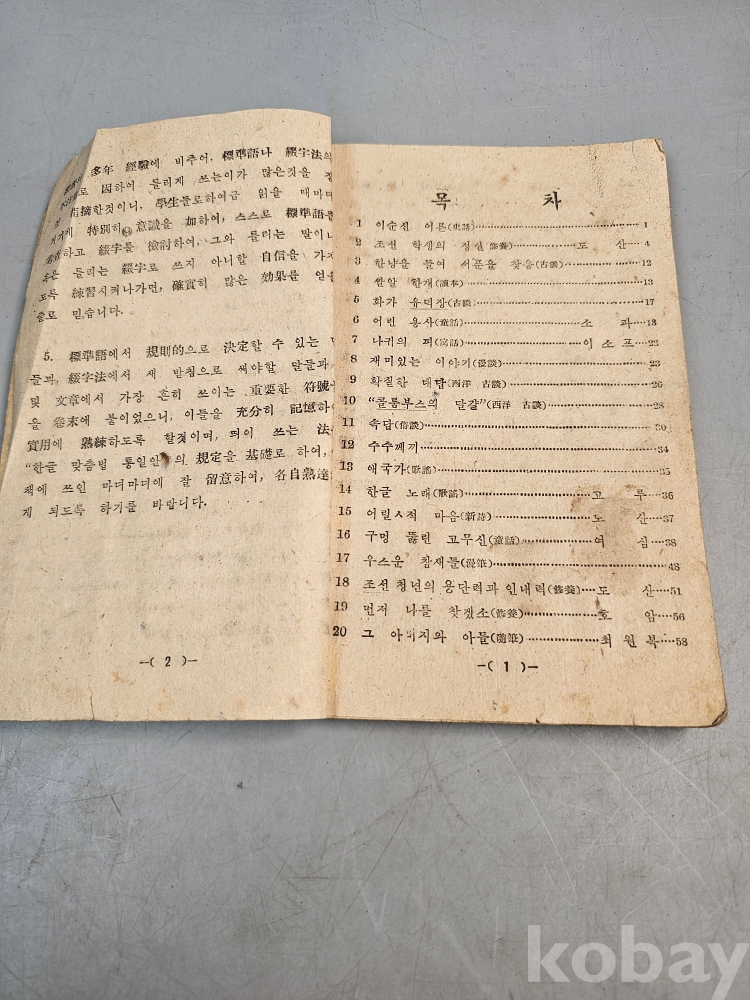 多年 經驗에 비추어, 標準語나 綴字法의
로 因하여 틀리게 쓰는이가 많은것을
指摘한것이니, 學生들로하여금 읽을 때마다
特別히 意識을 加하여, 스스로 標準語를
하고 綴字를 檢討하여, 그와 틀리는 말이나
혹은 틀리는 綴字로 쓰지 아니할 自信을 가지
도록 練習시켜나가면, 確實히 많은 効果를 얻을
줄로 믿습니다.
5. 標準語에서 規則的으로 決定할 수 있는
들과, 綴字法에서 새 받침으로 써야할 말들과
및 文章에서 가장 흔히 쓰이는 重要한 符號
을 卷末에 붙이었으니, 이들을 充分히 記憶하
實用에 熟練하도록 할것이며, 띄어 쓰는 法
“한글 맞춤법 통일안”의 規定을 基礎로 하여,
책에 쓰인 마디마디에 잘 留意하여, 各自熟達
게 되도록 하기를 바랍니다.
—( 2 )—
목 차
1 이순신 어른(史話)……1
2 조선 학생의 정신(修養)……도 산…4
3 한냥을 들여 서푼을 찾음(古談)……12
4 쌀알 한개(讀本)……13
5 화가 유덕장(古談)……17
6 어린 용사(童話)……소 파…18
7 나귀의 꾀(寓話)……이 소 프…22
8 재미있는 이야기(漫談)……23
9 확실한 대답(西洋 古談)……26
10 “콜롬부스의 달걀”(西洋 古談)……28
11 속담(俗談)……30
12 수수께끼……34
13 애국가(歌謠)……35
14 한글 노래(歌謠)……고 루…36
15 어릴ㅅ적 마음(新詩)……노 산…37
16 구멍 뚫린 고무신(童話)……여 심…38
17 우스운 참재들(漫筆)……48
18 조선 청년의 용단력과 인내력(修養)…도 산…51
19 먼저 나를 찾겠소(修養)……호 암…56
20 그 아버지와 아들(隨筆)……최 원 복…58
—( 1 )—
kobay